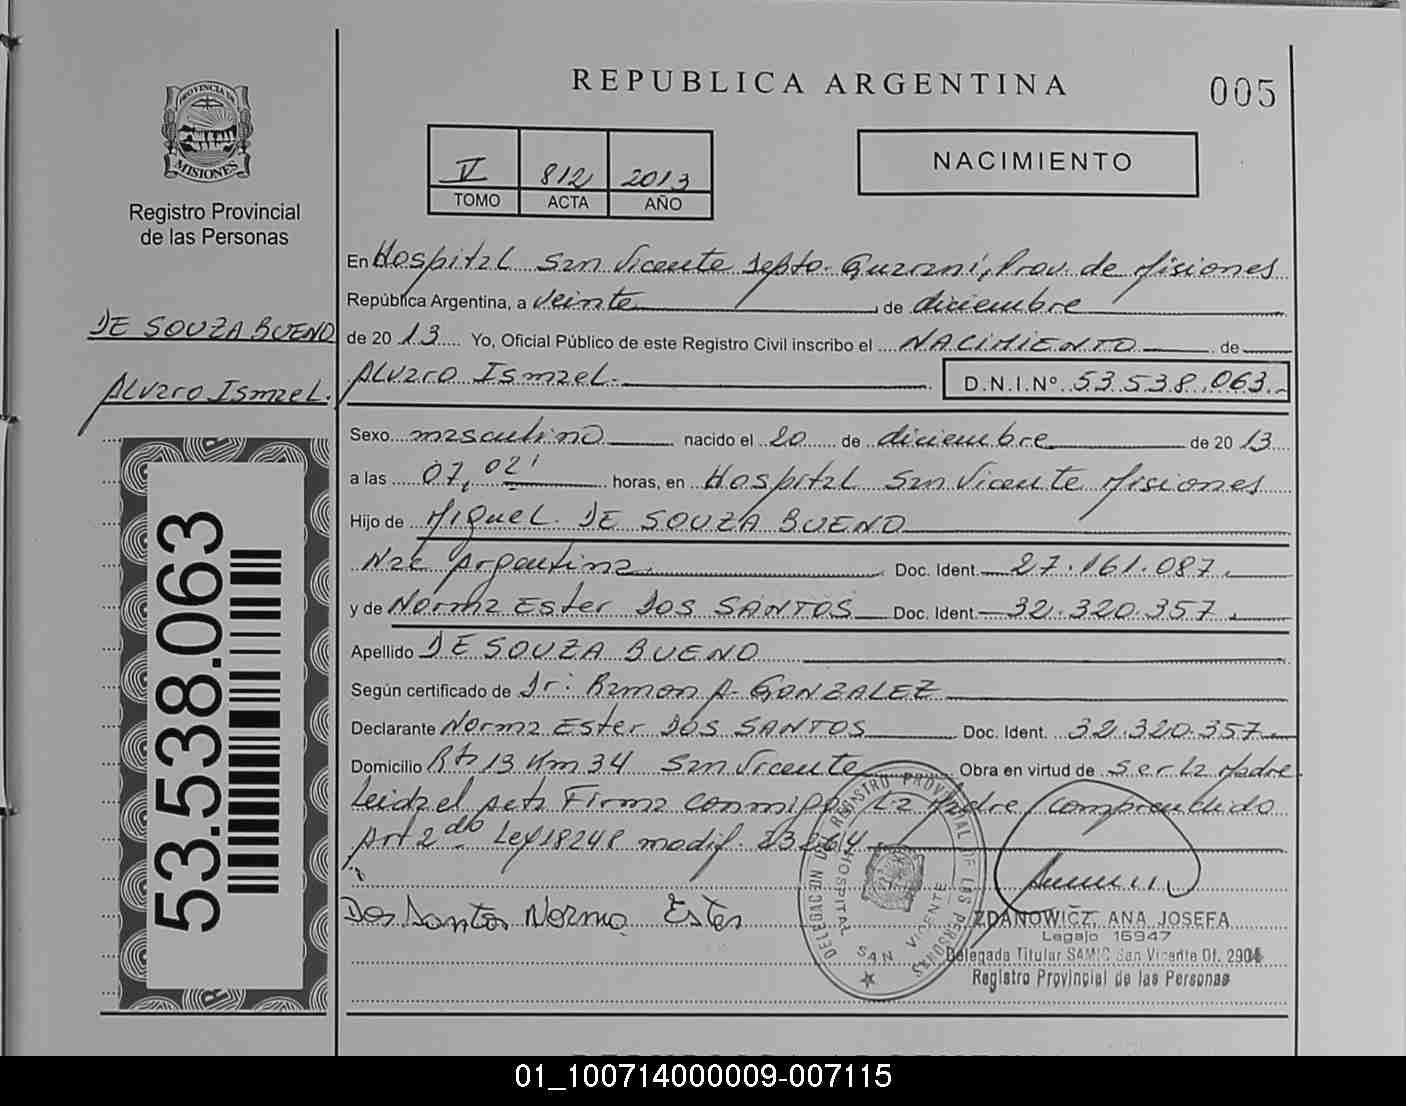 REPUBLICA ARGENTINA
005
PROVINCIA DE
MISIONES
Registro Provincial
de las Personas
V 812 2013
TOMO ACTA AÑO
NACIMIENTO
DE SOUZA BUENO
Alvaro Ismael.
53.538.063
En Hospital San Vicente Depto. Guaraní, Prov. de Misiones
República Argentina, a Veinte de diciembre
de 2013 Yo, Oficial Público de este Registro Civil inscribo el NACIMIENTO de
Alvaro Ismael. D.N.I.Nº 53.538.063.-
Sexo masculino nacido el 20 de diciembre de 2013
a las 07,02' horas, en Hospital San Vicente Misiones
Hijo de Miguel DE SOUZA BUENO
Nac Argentina. Doc. Ident. 27.161.087.
y de Norma Ester DOS SANTOS Doc. Ident. 32.320.357.
Apellido DE SOUZA BUENO
Según certificado de Dr: Ramon A. GONZALEZ
Declarante Norma Ester DOS SANTOS Doc. Ident. 32.320.357
Domicilio Rta 13 Km 34 San Vicente Obra en virtud de Ser la Madre
Leida el Acta Firma conmigo La Madre/Comprendido
Art 2do Ley 18248 modif. 23264
Dos Santos Norma Ester
DELEGACION DEL REGISTRO PROVINCIAL DE LAS PERSONAS
HOSPITAL
SAN VICENTE
ZDANOWICZ, ANA JOSEFA
Legajo 16947
Delegada Titular SAMIC San Vicente Of. 2904
Registro Provincial de las Personas
01_100714000009-007115